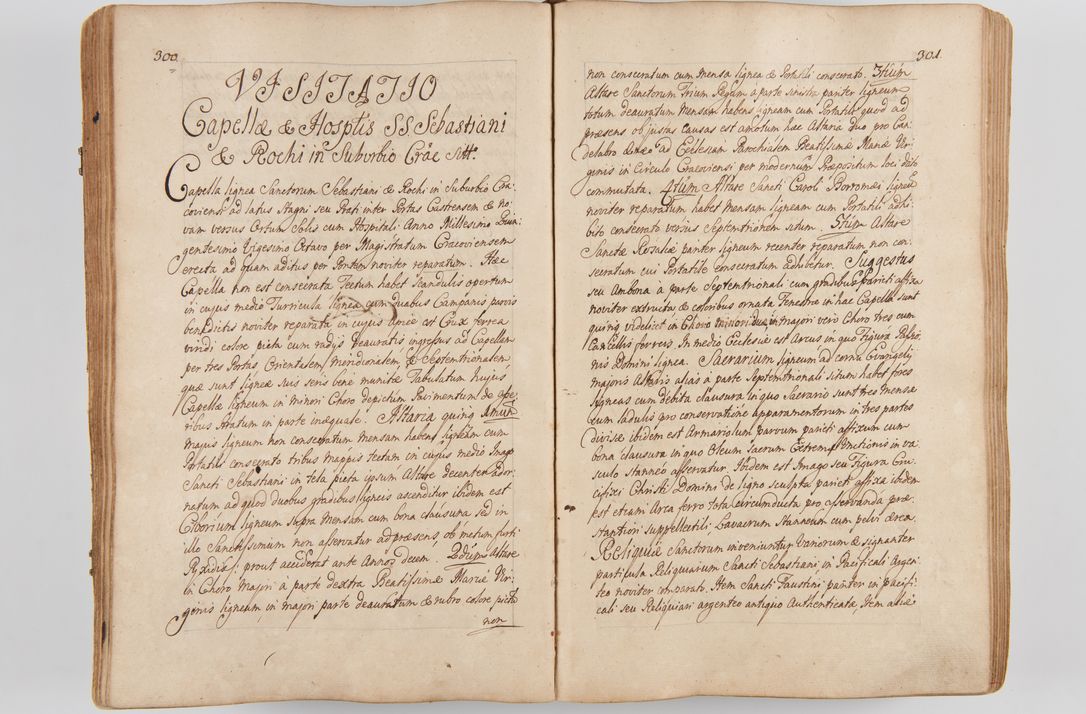 300
VISITATIO
Capellæ & Hosptis SS Sebastiani
& Rochi in Suburbio Crãe Sitt.
Capella lignea Sanctorum Sebastiani & Rochi in Suburbio Cra-
coviensi ad latus Stagni seu Prati inter Portas Castrensem & no-
vam versus Ortum Solis cum Hospitali Anno Millesimo Quin-
gentesimo Vigesimo Octavo per Magistratum Cracoviensem
erecta ad quam aditus per Pontem noviter reparatum. Hæc
Capella non est consecrata Tectum habet Scandulis opertum
in cujus medio Turricula lignea cum duabus Campanis parvis
benedictis noviter reparata in cujus Apice est Crux ferrea
viridi colore picta cum radijs deauratis ingressus ad Capellam
per tres Portas Orientalem, Meridionalem, & Septentrionalem
quæ sunt ligneæ suis seris bene munitæ Tabulatum hujus
Capellæ ligneum in minori Choro depictum Pavimentum de asse-
ribus stratum in parte inæquale. Altaria quinq 1mum
majus ligneum non consecratum mensam habens ligneam cum
Portatili consecrato tribus mappis tectam in cujus medio Imago
Sancti Sebastiani in tela picta ipsum Altare decenter ador-
natum ad quod duobus gradibus ligneis ascenditur ibidem est
Ciborium ligneum supra mensam cum bona clausura sed in
illo Sanctissimum non asservatur ad præsens ob metum furti
Pyxidis, prout acciderat ante Annos decem. 2dum Altare
in Choro Majori à parte dextra Beatissimæ Mariæ Vir-
ginis ligneum in majori parte deauratum & rubro colore pictũ
non
301.
non consecratum cum mensa lignea & Portatili consecrato. 3tium
Altare Sanctorum Trium Regum à parte sinistra pariter ligneum
totum deauratum Mensam habens ligneam cum Portatili quod ad
præsens ob justas causas est amotum hæc Altaria duo pro Can-
delabro æneo ad Ecclesiam Parochialem Beatissimæ Mariæ Vir-
ginis in Circulo Cracoviensi per modernum Præpositum loci dicto
commutata. 4tum Altare Sancti Caroli Borromæi ligneũ
noviter reparatum habet Mensam ligneam cum Portatili adhi-
bito consecrato versus Septentrionem situm. 5tum Altare
Sanctæ Rosaliæ pariter ligneum recenter reparatum non con-
secratum cui Portatile consecratum adhibetur. Suggestus
seu Ambona à parte Septentrionali cum gradibus parieti affixa
noviter extructa & coloribus ornata Fenestræ in hac Capella sunt
quinq videlicet in Choro minori duæ in majori vero Choro tres cum
Cancellis ferreis. In medio Ecclesiæ est Arcus in quo Figura Passio-
nis Domini lignea. Sacrarium ligneum ad cornu Evangelij
majoris Altaris alias à parte Septemtrionali situm habet fores
ligneas cum debita clausura in quo Sacrario sunt tres mensæ
cum ladulis pro conservatione apparamentorum in tres partes
divisæ ibidem est Armariolum parvum parieti affixum cum
bona clausura in quo Oleum Sacrum Extremæ Unctionis in va-
sculo Stanneo asservatur. Ibidem est Imago seu Figura Cru-
cifixi Christi Domini de ligno sculpta parieti affixa ibidem
est etiam Arca ferro tota circumducta pro asservanda præ-
stantiori suppellectili. Lavacrum Stanneum cum pelvi ærea.
Reliquiæ Sanctorum inveniuntur Variorum & signanter
particula Reliquiarum Sancti Sebastiani in Pacificali Argen-
teo noviter comparato. Item Sancti Faustini pariter in pacifi-
cali seu Reliquiari argenteo antiquo Authenticatæ Item aliæ